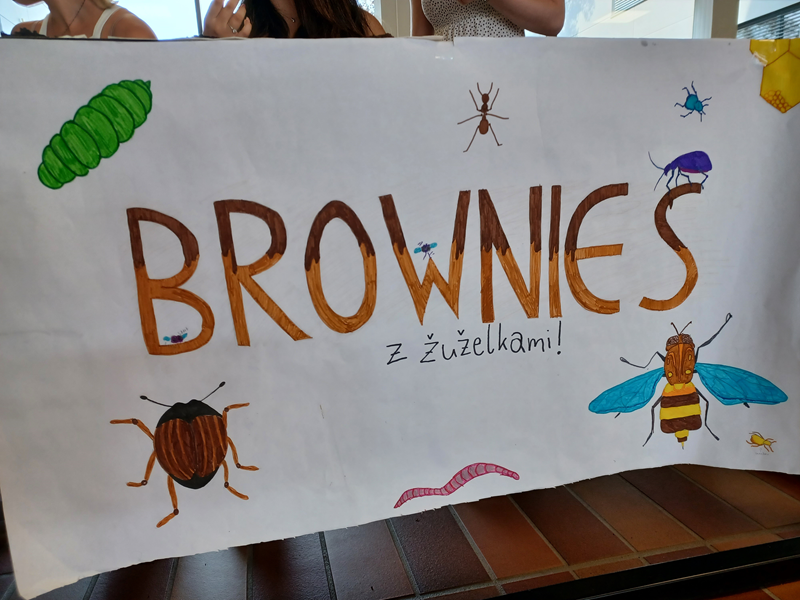 BROWNIES
z žuželkami!